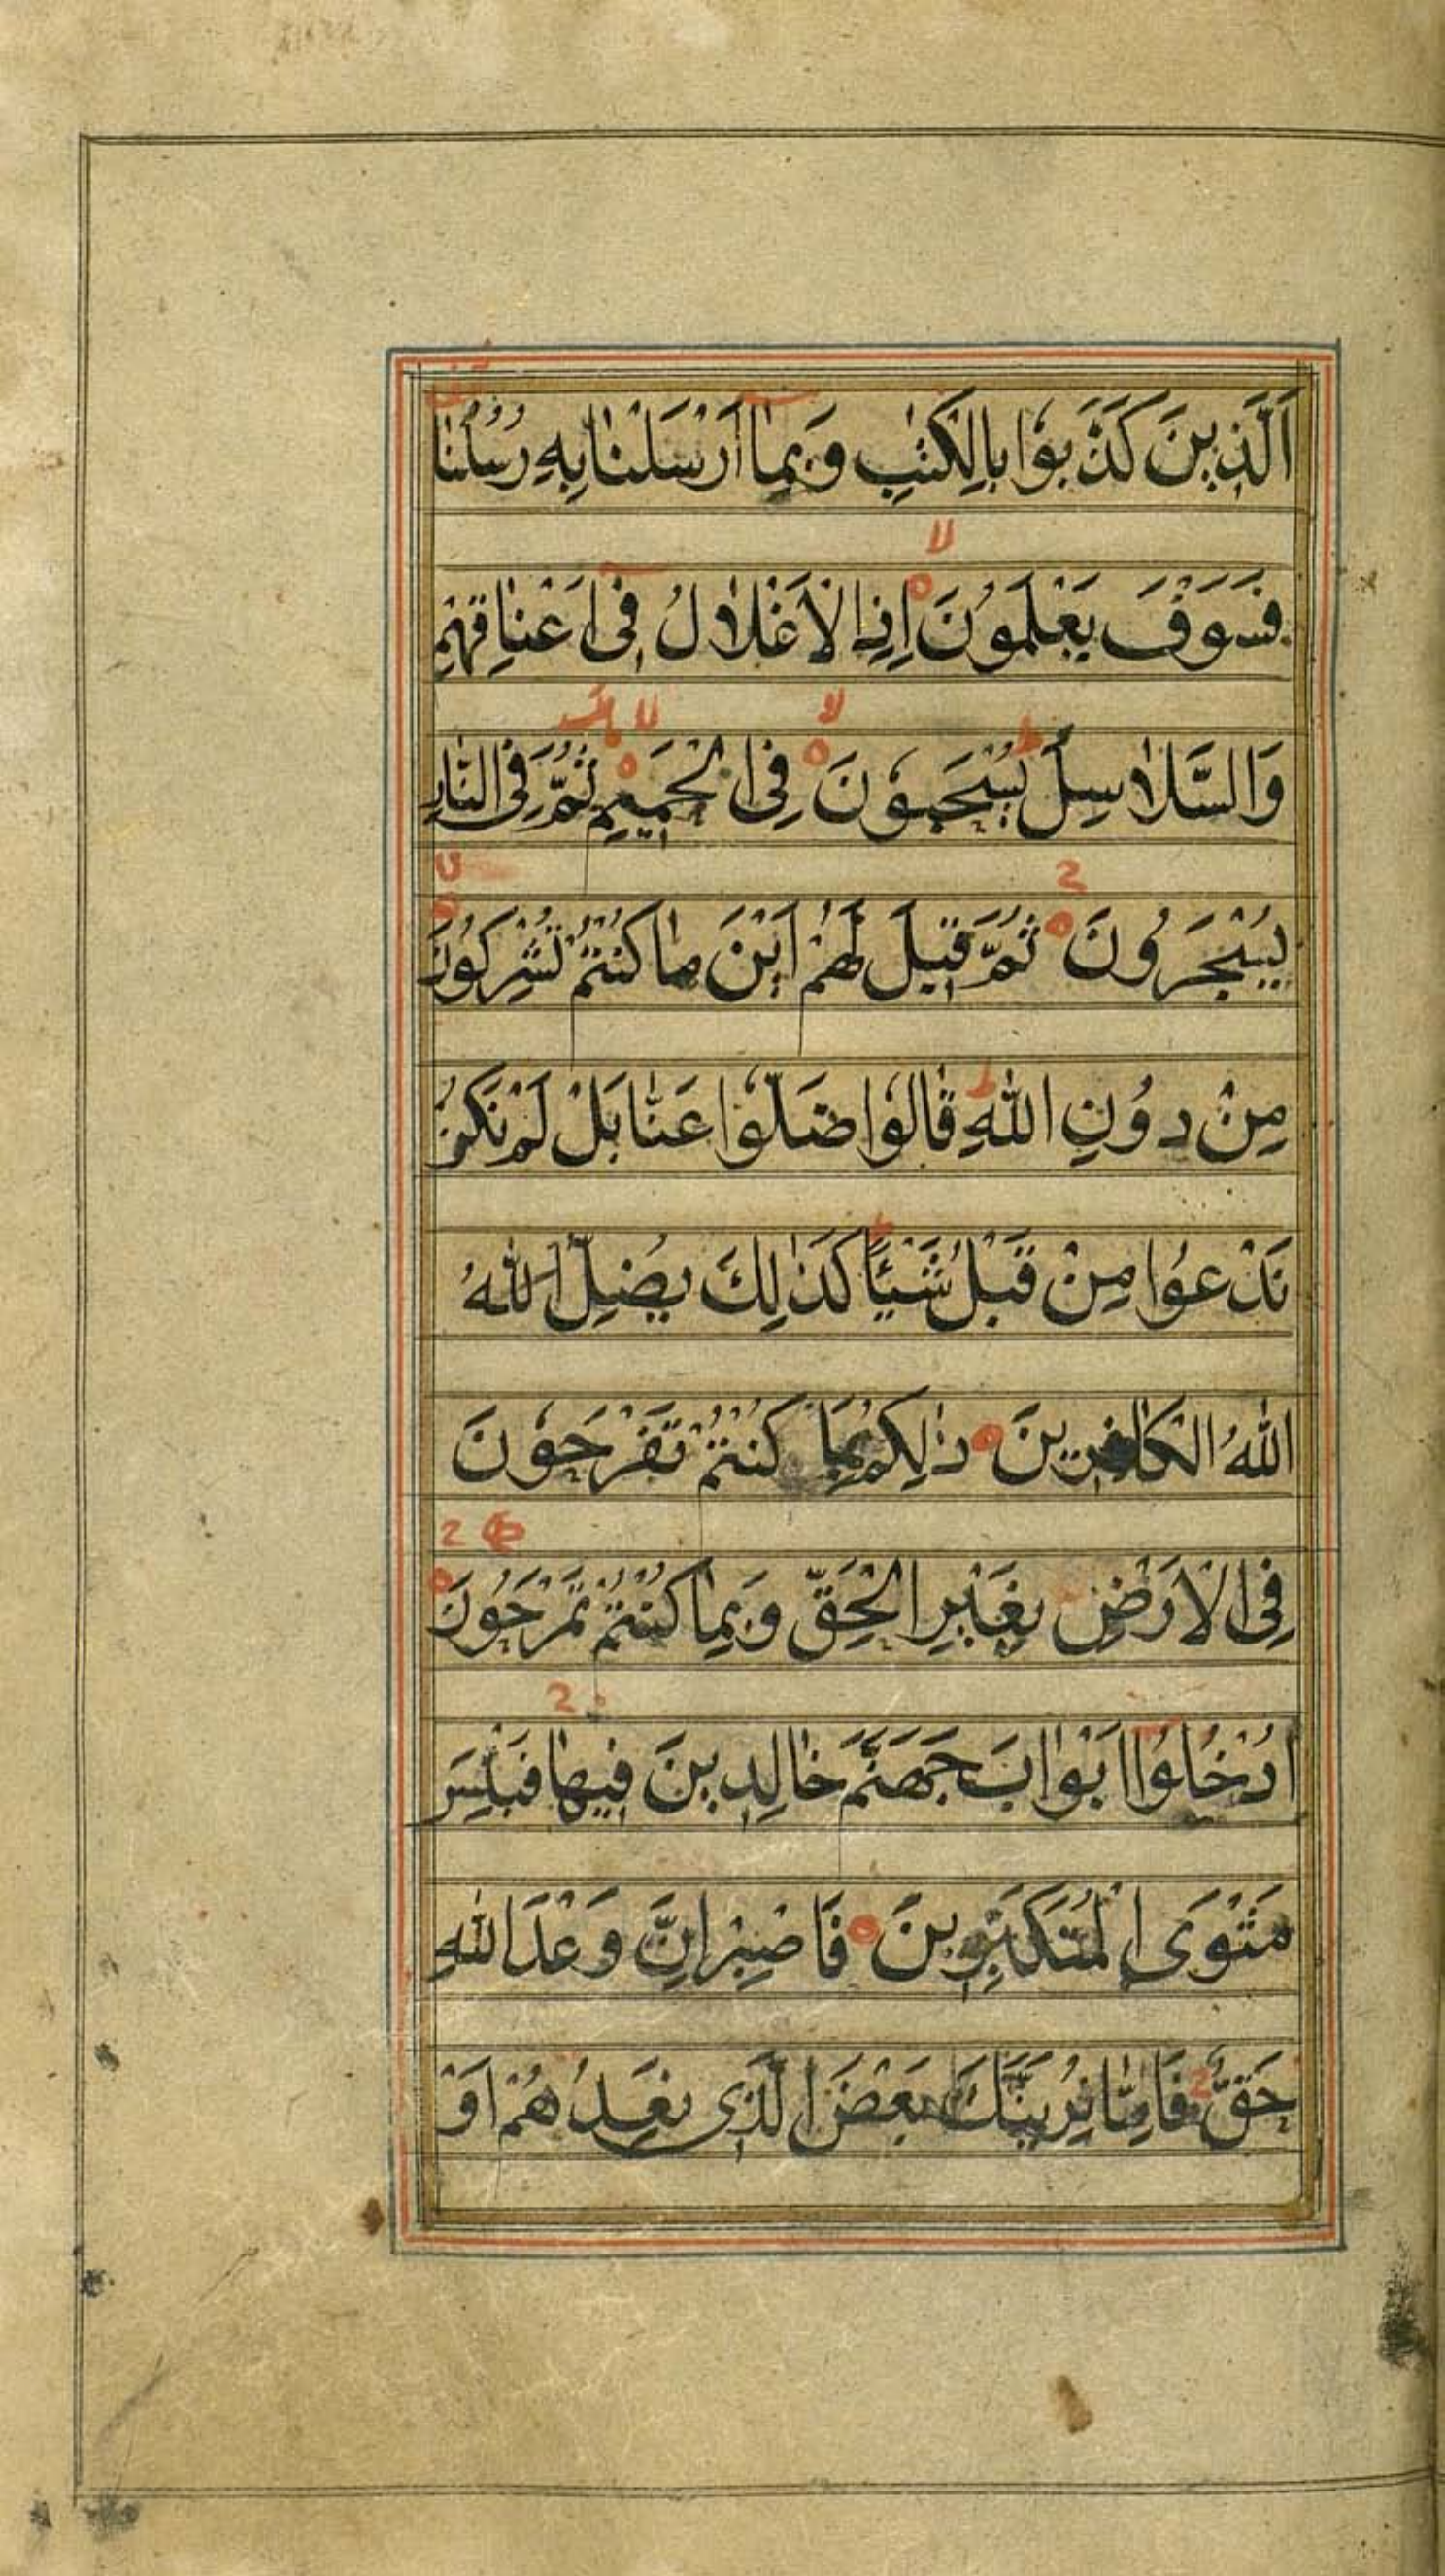 اَلَّذِينَ كَذَّبُوا بِالْكِتٰبِ وَبِمٰا اَرْسَلْنٰا بِهِ رُسُلَنٰا
فَسَوْفَ يَعْلَمُونَ اِذِ الْاَغْلٰالُ فِى اَعْنٰاقِهِمْ
وَالسَّلٰاسِلُ يُسْحَبُونَ فِى الْحَمِيمِ ثُمَّ فِى النّٰارِ
يُسْجَرُونَ ثُمَّ قِيلَ لَهُمْ اَيْنَ مٰا كُنْتُمْ تُشْرِكُونَ
مِنْ دُونِ اللّٰهِ قٰالُوا ضَلُّوا عَنّٰا بَلْ لَمْ نَكُنْ
نَدْعُوا مِنْ قَبْلُ شَيْئًا كَذٰلِكَ يُضِلُّ اللّٰهُ
اللّٰهُ الْكٰافِرِينَ ذٰلِكُمْ بِمٰا كُنْتُمْ تَفْرَحُونَ
فِى الْاَرْضِ بِغَيْرِ الْحَقِّ وَبِمٰا كُنْتُمْ تَمْرَحُونَ
اُدْخُلُوا اَبْوٰابَ جَهَنَّمَ خٰالِدِينَ فِيهٰا فَبِئْسَ
مَثْوَى الْمُتَكَبِّرِينَ فَاصْبِرْ اِنَّ وَعْدَ اللّٰهِ
حَقٌّ فَاِمّٰا نُرِيَنَّكَ بَعْضَ الَّذِى نَعِدُهُمْ اَوْ